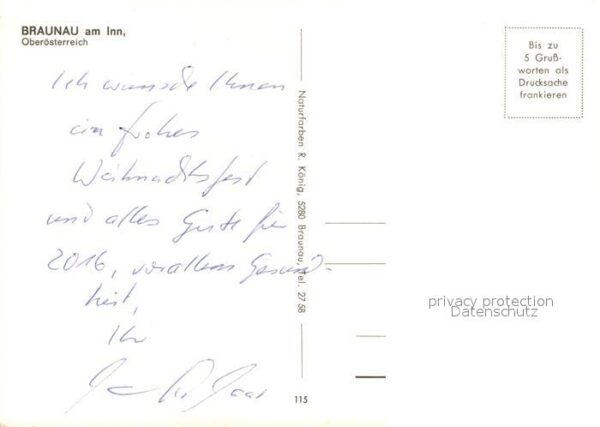 BRAUNAU am Inn,
Oberösterreich
Ich wünsche Ihnen
ein frohes
Weihnachtsfest
und alles Gute für
2016, vor allem Gesund-
heit,
Ihr
Naturfarben R. König, 5280 Braunau, Tel. 27 58
115
Bis zu
5 Gruß-
worten als
Drucksache
frankieren
privacy protection
Datenschutz